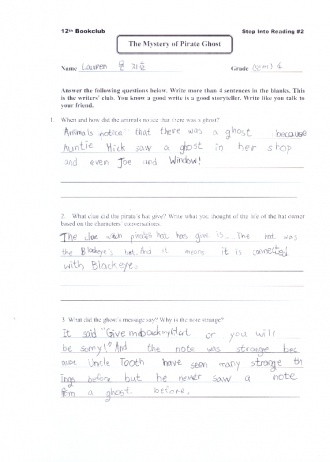 12th Bookclub Step Into Reading #2
The Mystery of Pirate Ghost
Name Lauren 문 지호 Grade 6
Answer the following questions below. Write more than 4 sentences in the blanks. This
is the writers' club. You know a good write is a good storyteller. Write like you talk to
your friend.
1. When and how did the animals notice that there was a ghost?
Animals notice that there was a ghost because
Auntie Hick saw a ghost in her shop
and even Joe and Window!
2. What clue did the pirate's hat give? Write what you thought of the of the hat owner
based on the characters' conversations.
The clue when pirates hat has give is... The hat was
the Blackeye's hat. And it means it is connected
with Blackeye.
3. What did the ghost's message say? Why is the note strange?
It said "Give me back my Hat or you will
be sorry!" And the note was strange bec
ause Uncle Tooth have seen many strange th
ings before but he never saw a note
from a ghost before.